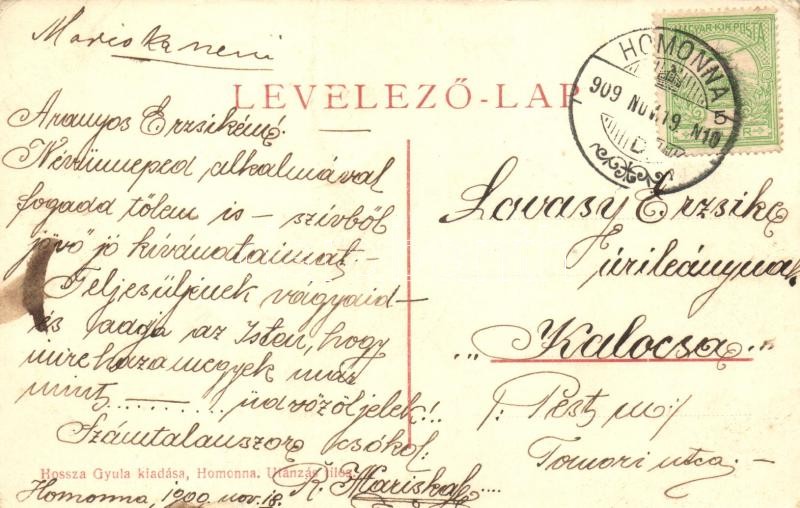 Mariska neni
LEVELEZŐ-LAP
MAGYAR KIR. POSTA
HOMONNA
909 NOV. 19. N10
D
5
Aranyos Erzsikém!
Névünneped alkalmával
fogadd tőlem is – szívből
jövő jó kívánataimat. –
Teljesüljenek vágyaid –
és adja az Isten, hogy
mire hazamegyek már
mint .......... üdvözöljelek!..
Számtalanszor csókol:
R. Mariska
Homonna, 1909. nov. 18.
Hossza Gyula kiadása, Homonna. Utánzás tilos.
Lovasy Erzsike
úrileánynak
„ Kalocsa. "
/: Pest m :/
Tomori utca. –